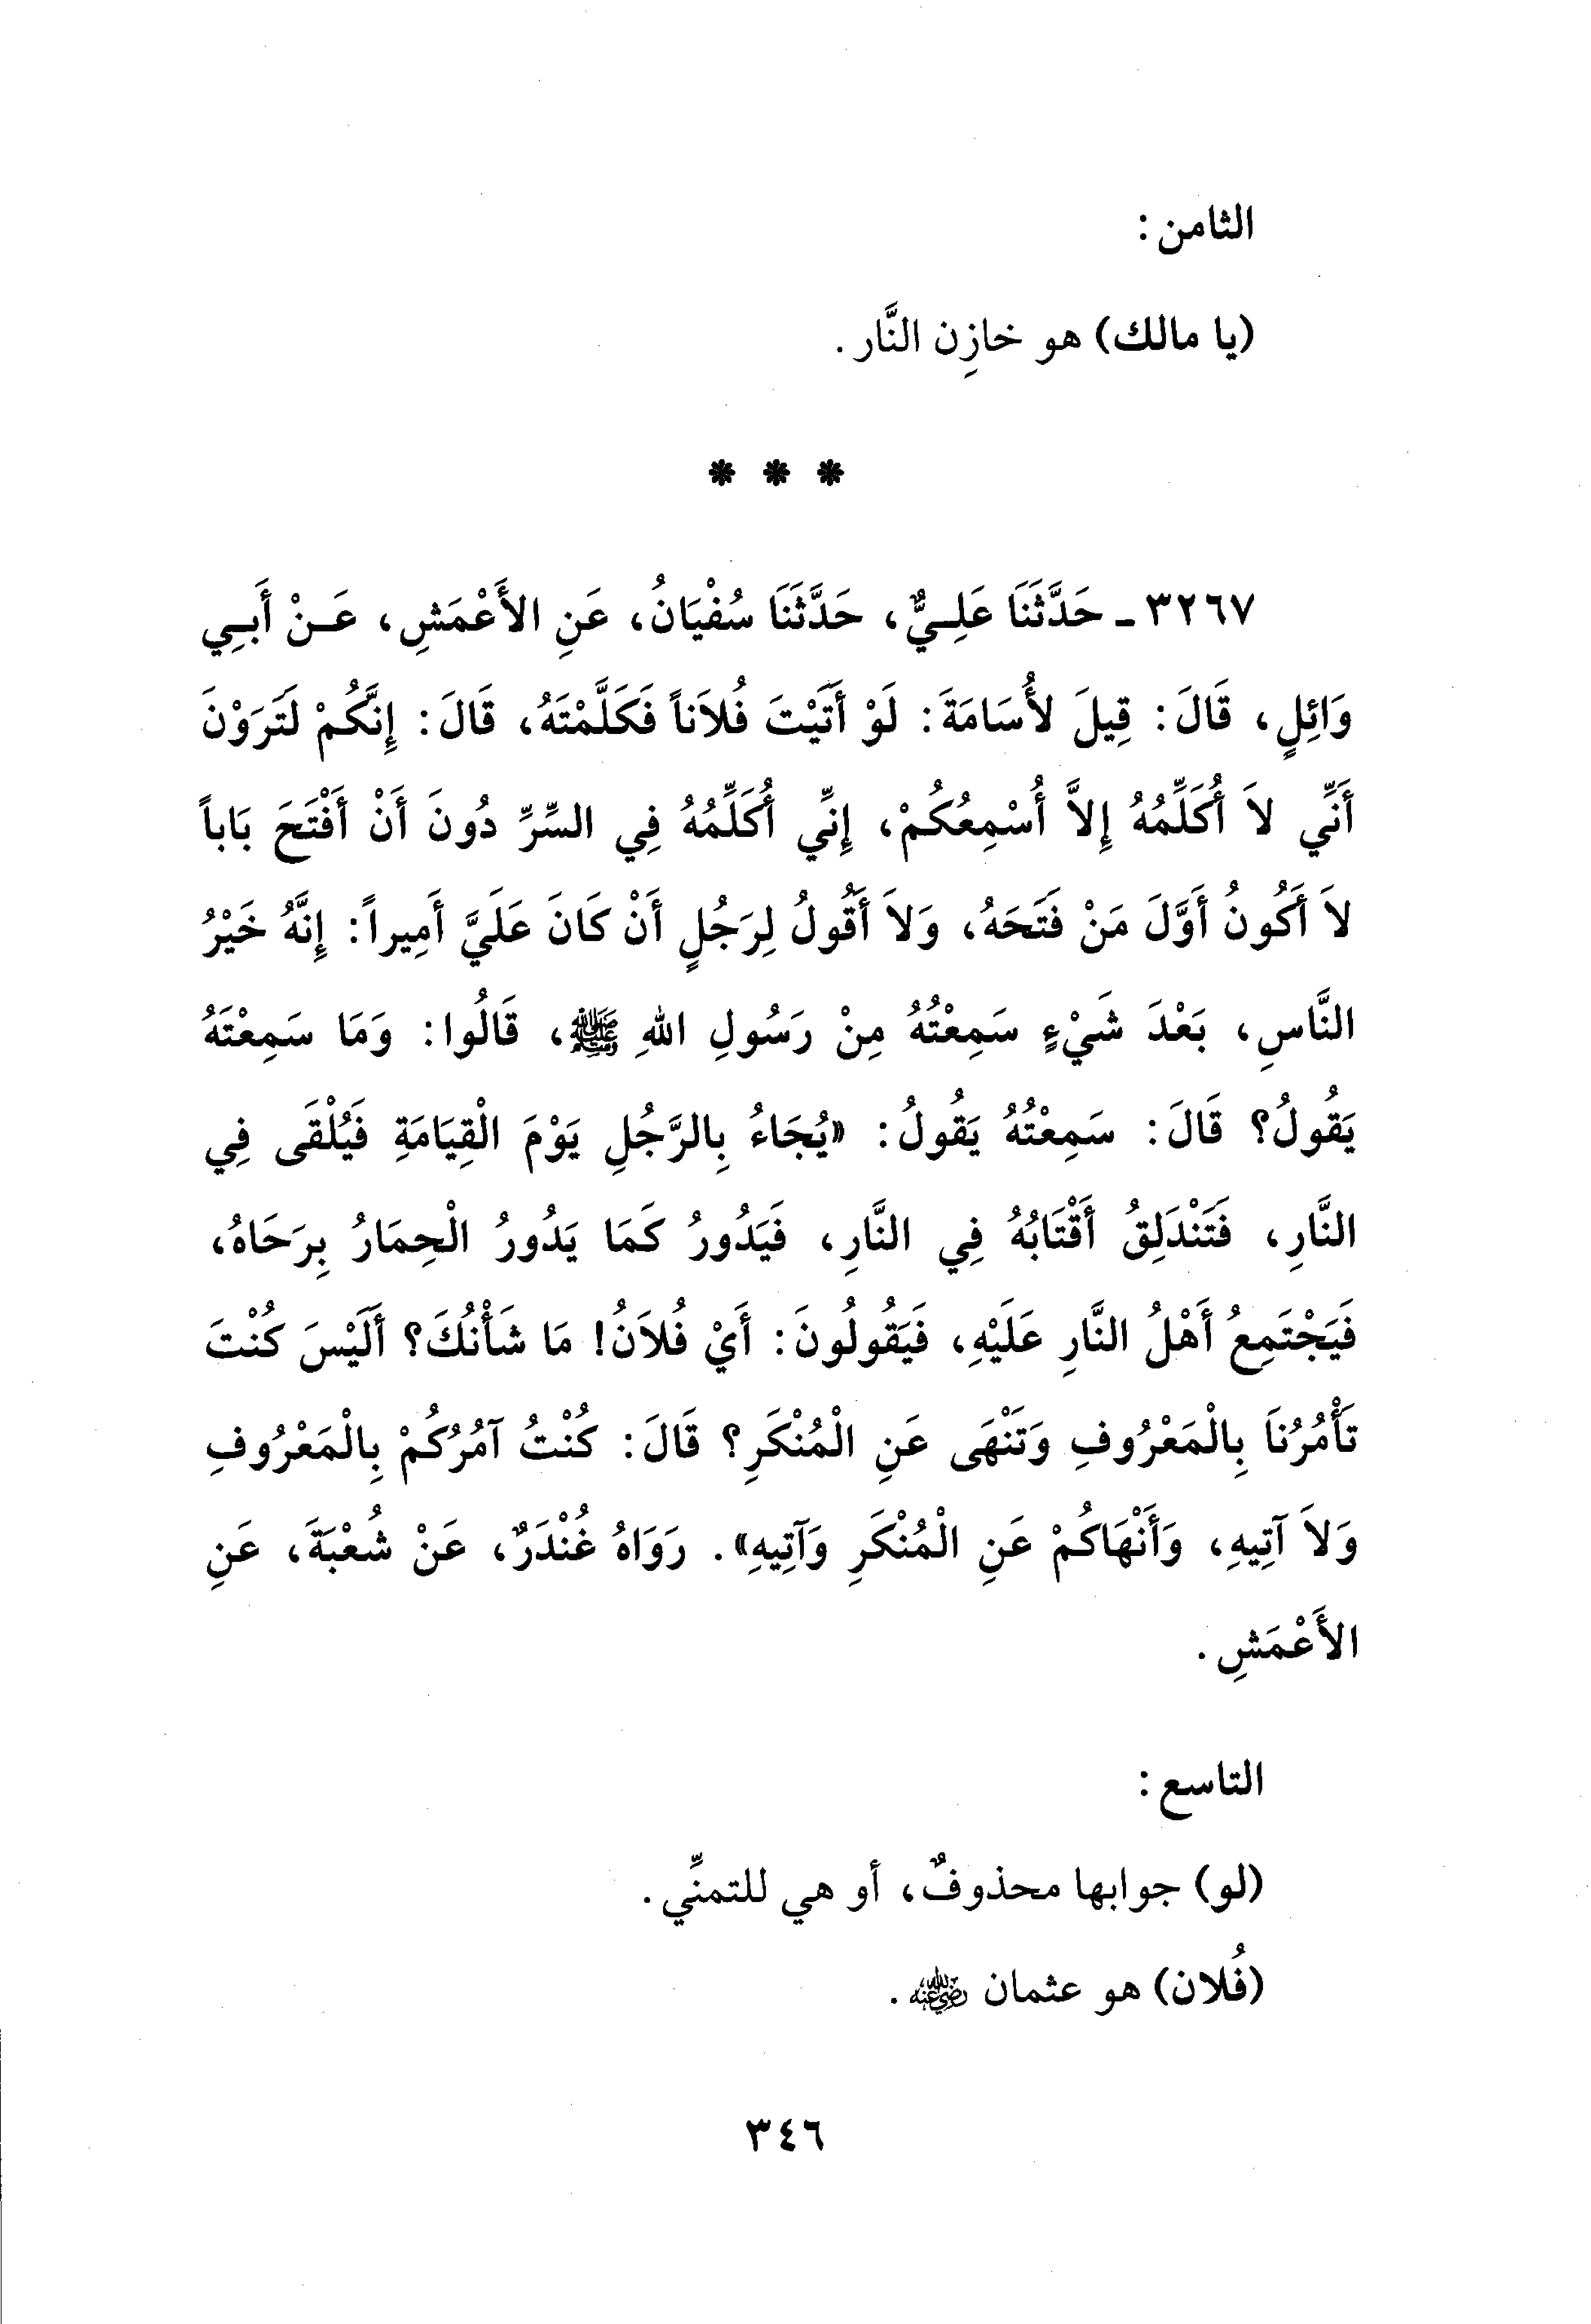 الثامن :
(يا مالك) هو خازِن النَّار .
* * *
٣٢٦٧ ـ حَدَّثَنَا عَلِـيٌّ، حَدَّثَنَا سُفْيَانُ، عَنِ الأَعْمَشِ، عَـنْ أَبـِي
وَائِلٍ، قَالَ: قِيلَ لأُسَامَةَ: لَوْ أَتَيْتَ فُلاَناً فَكَلَّمْتَهُ، قَالَ: إِنَّكُمْ لَتَرَوْنَ
أَنِّي لاَ أُكَلِّمُهُ إِلاَّ أُسْمِعُكُمْ، إِنِّي أُكَلِّمُهُ فِي السِّرِّ دُونَ أَنْ أَفْتَحَ بَاباً
لاَ أَكُونُ أَوَّلَ مَنْ فَتَحَهُ، وَلاَ أَقُولُ لِرَجُلٍ أَنْ كَانَ عَلَيَّ أَمِيراً: إِنَّهُ خَيْرُ
النَّاسِ، بَعْدَ شَيْءٍ سَمِعْتُهُ مِنْ رَسُولِ اللهِ ﷺ، قَالُوا: وَمَا سَمِعْتَهُ
يَقُولُ؟ قَالَ: سَمِعْتُهُ يَقُولُ: «يُجَاءُ بِالرَّجُلِ يَوْمَ الْقِيَامَةِ فَيُلْقَى فِي
النَّارِ، فَتَنْدَلِقُ أَقْتَابُهُ فِي النَّارِ، فَيَدُورُ كَمَا يَدُورُ الْحِمَارُ بِرَحَاهُ،
فَيَجْتَمِعُ أَهْلُ النَّارِ عَلَيْهِ، فَيَقُولُونَ: أَيْ فُلاَنُ! مَا شَأْنُكَ؟ أَلَيْسَ كُنْتَ
تَأْمُرُنَا بِالْمَعْرُوفِ وَتَنْهَى عَنِ الْمُنْكَرِ؟ قَالَ: كُنْتُ آمُرُكُمْ بِالْمَعْرُوفِ
وَلاَ آتِيهِ، وَأَنْهَاكُمْ عَنِ الْمُنْكَرِ وَآتِيهِ». رَوَاهُ غُنْدَرٌ، عَنْ شُعْبَةَ، عَنِ
الأَعْمَشِ.
التاسع :
(لو) جوابها محذوفٌ، أو هي للتمنِّي.
(فُلان) هو عثمان رضي الله عنه .
٣٤٦